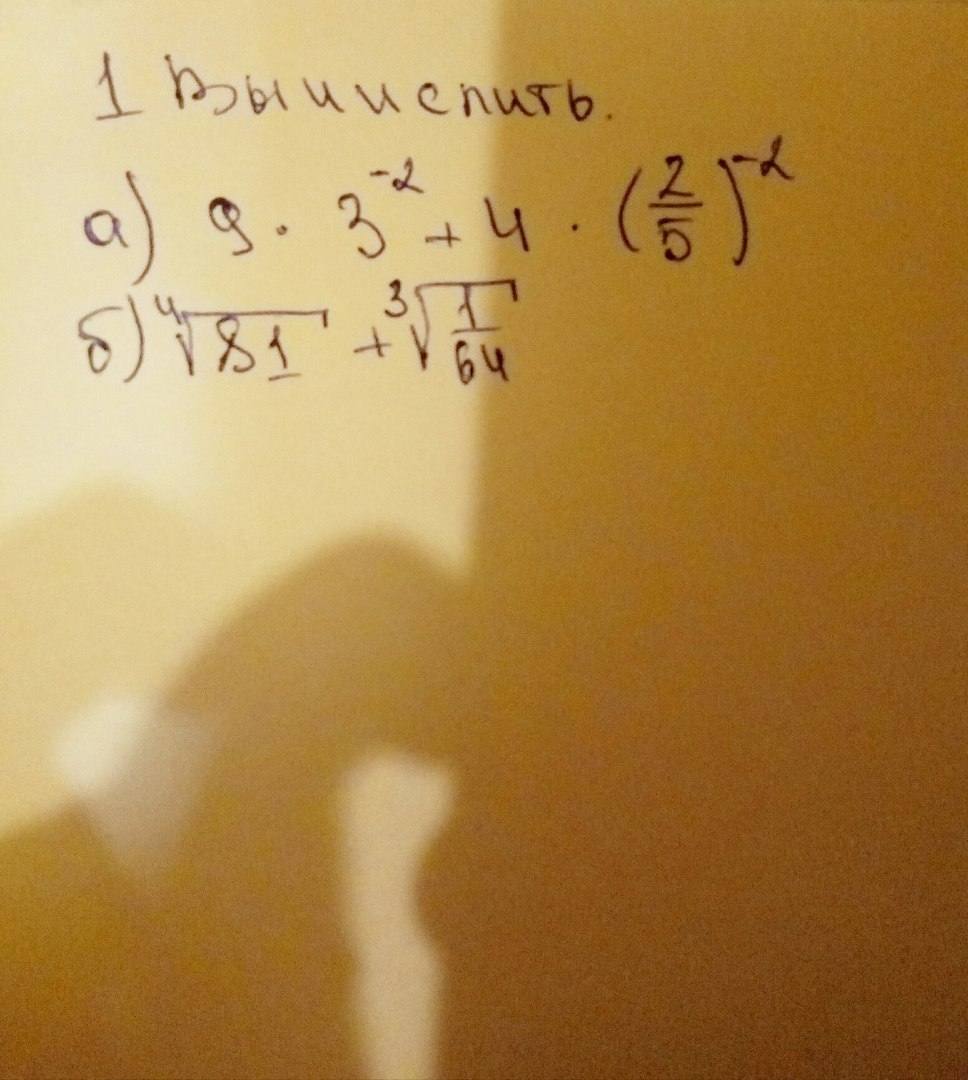 1 Вычислить.
а) 9 · 3^{-2} + 4 · (2/5)^{-2}
б) ⁴√81 + ³√(1/64)